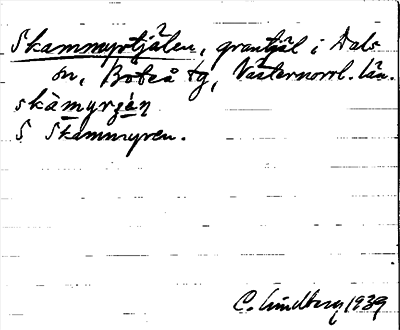 Skammyrtjälen, grantjäl i Dals
sn, Boteå tg, Västernorrl. län.
skámyrʒɛ́n
S Skammyren.
C. Lindberg 1939